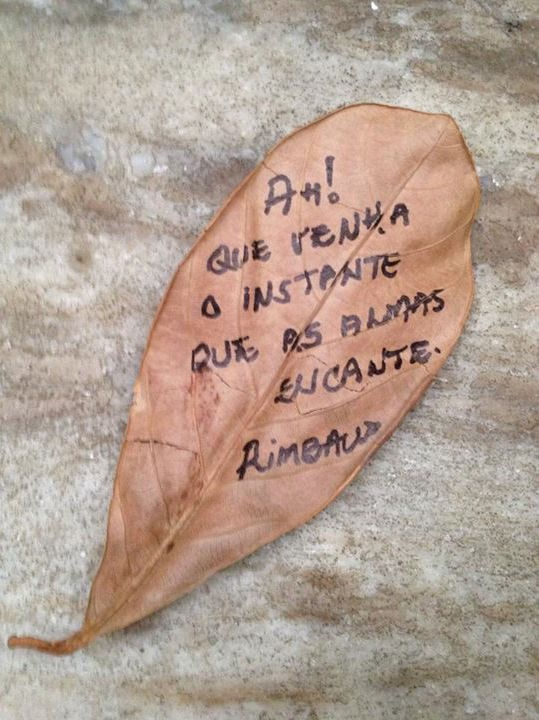 AH!
QUE VENHA
O INSTANTE
QUE AS ALMAS
ENCANTE.
RIMBAUD